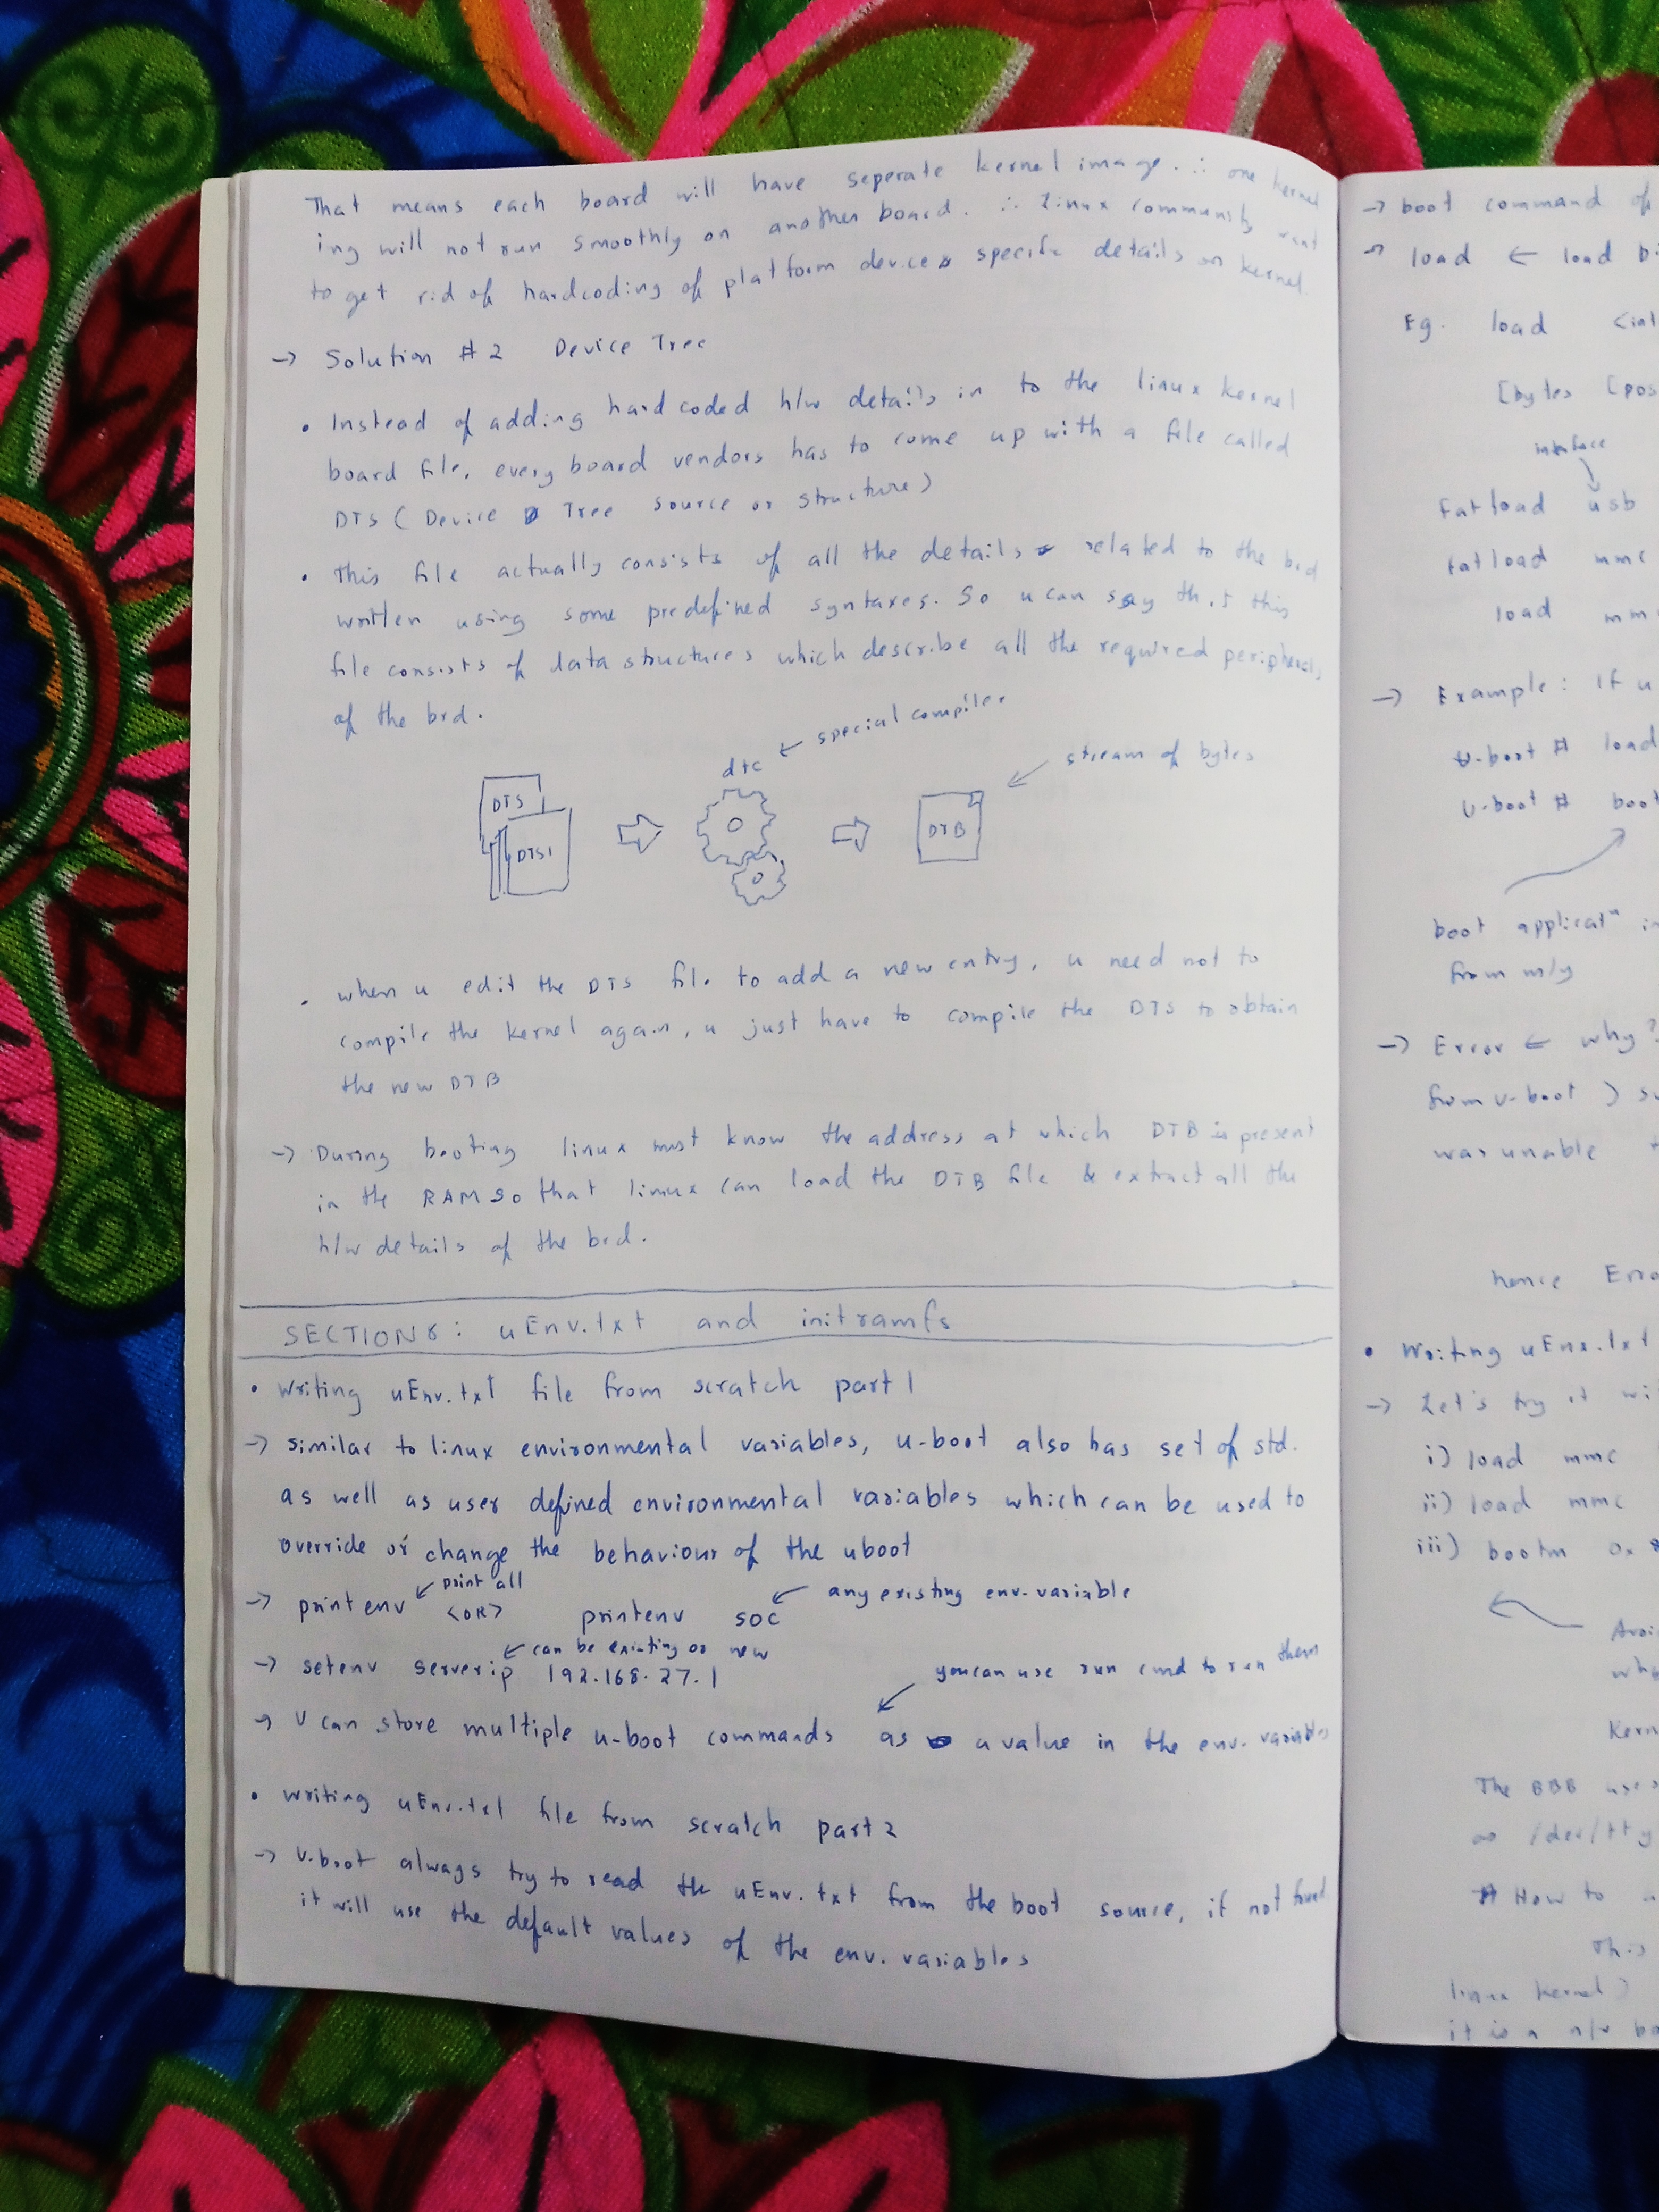 That means each board will have seperate kernel image. ∴ one kernel
ing will not run smoothly on another board. ∴ Linux community want
to get rid of hardcoding of platform devices specific details on kernel
→ Solution # 2 Device Tree
• Instead of adding hardcoded h/w details in to the linux kernel
board file, every board vendors has to come up with a file called
DTS ( Device Tree source or structure)
• This file actually consists of all the details related to the brd
written using some predefined syntaxes. So u can say that this
file consists of data structures which describe all the required peripherals
of the brd.
dtc ← special compiler
stream of bytes
DTS
DTSI
DTB
• when u edit the DTS file to add a new entry, u need not to
compile the kernel again, u just have to compile the DTS to obtain
the new DTB
→ During booting linux must know the address at which DTB is present
in the RAM so that linux can load the DTB file & extract all the
h/w details of the brd.
SECTION 8: uEnv.txt and initramfs
• Writing uEnv.txt file from scratch part 1
→ similar to linux environmental variables, u-boot also has set of std.
as well as user defined environmental variables which can be used to
override or change the behaviour of the uboot
← print all
← any existing env. variable
→ printenv <OR> printenv soc
← can be existing or new
→ setenv serverip 192.168.27.1
you can use run cmd to run them
→ U can store multiple u-boot commands as a value in the env. variables
• writing uEnv.txt file from scratch part 2
→ U-boot always try to read the uEnv.txt from the boot source, if not found
it will use the default values of the env. variables
→ boot command of
→ load ← load bi
Eg. load <int
[bytes [pos
interface
fatload usb
fatload mmc
load mm
→ Example: If u
U-boot # load
U-boot # boot
boot applicatⁿ in
from m/y
→ Error ← why?
from u-boot ) su
was unable t
hence Erro
• Writing uEnv.txt
→ Let's try it wi
i) load mmc
ii) load mmc
iii) bootm 0x8
Avoi
whe
Kern
The BBB uses
as /dev/tty
# How to
This
linux kernel)
it is a n/w ba